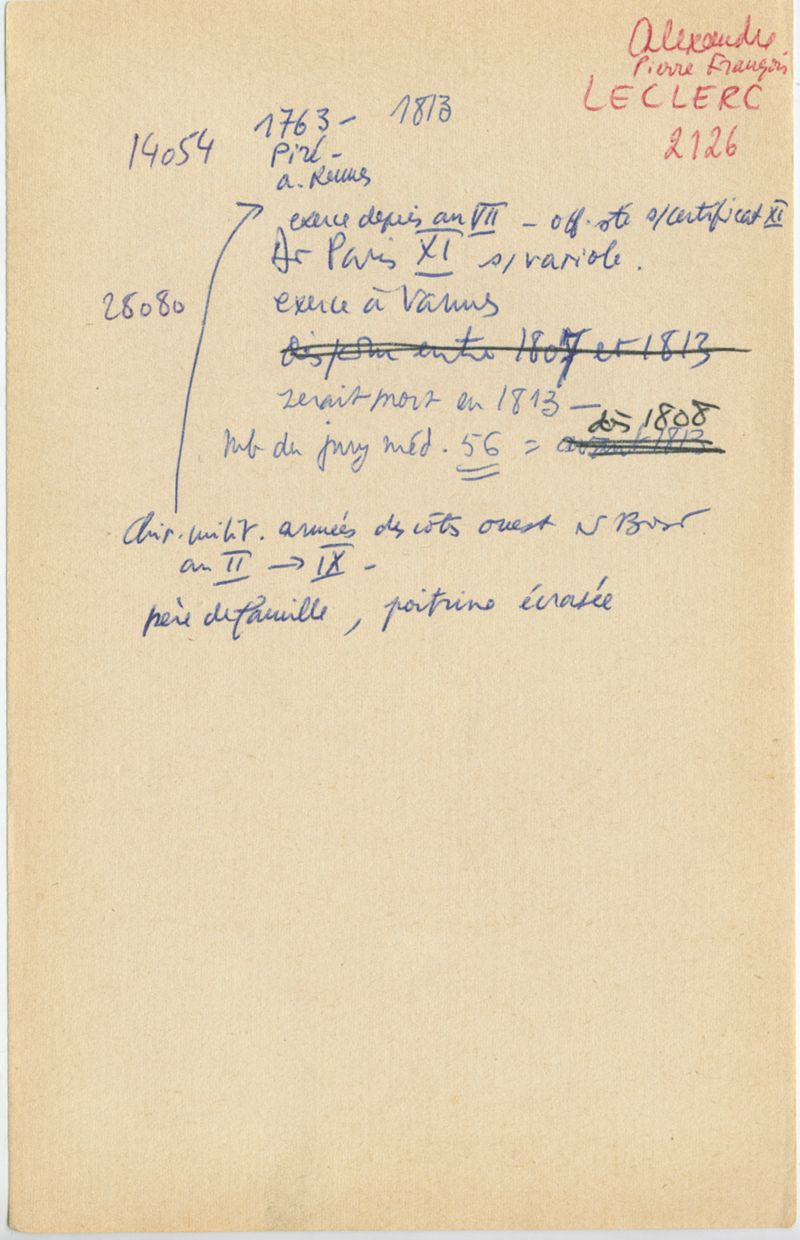 Alexandre
Pierre François
LECLERC
2126
1763 - 1813
14054
Piré -
a. Rennes
exerce depuis an VII - off. sté s/certificat XI
Dr Paris XI s/variole.
28080
exerce à Vannes
disparu entre 1807 et 1813
serait mort en 1813 -
dès 1808
mb du jury méd. 56 = avant 1813
Chir. milit. armées des côts ouest
an II → IX -
père de famille, poitrine écrasée